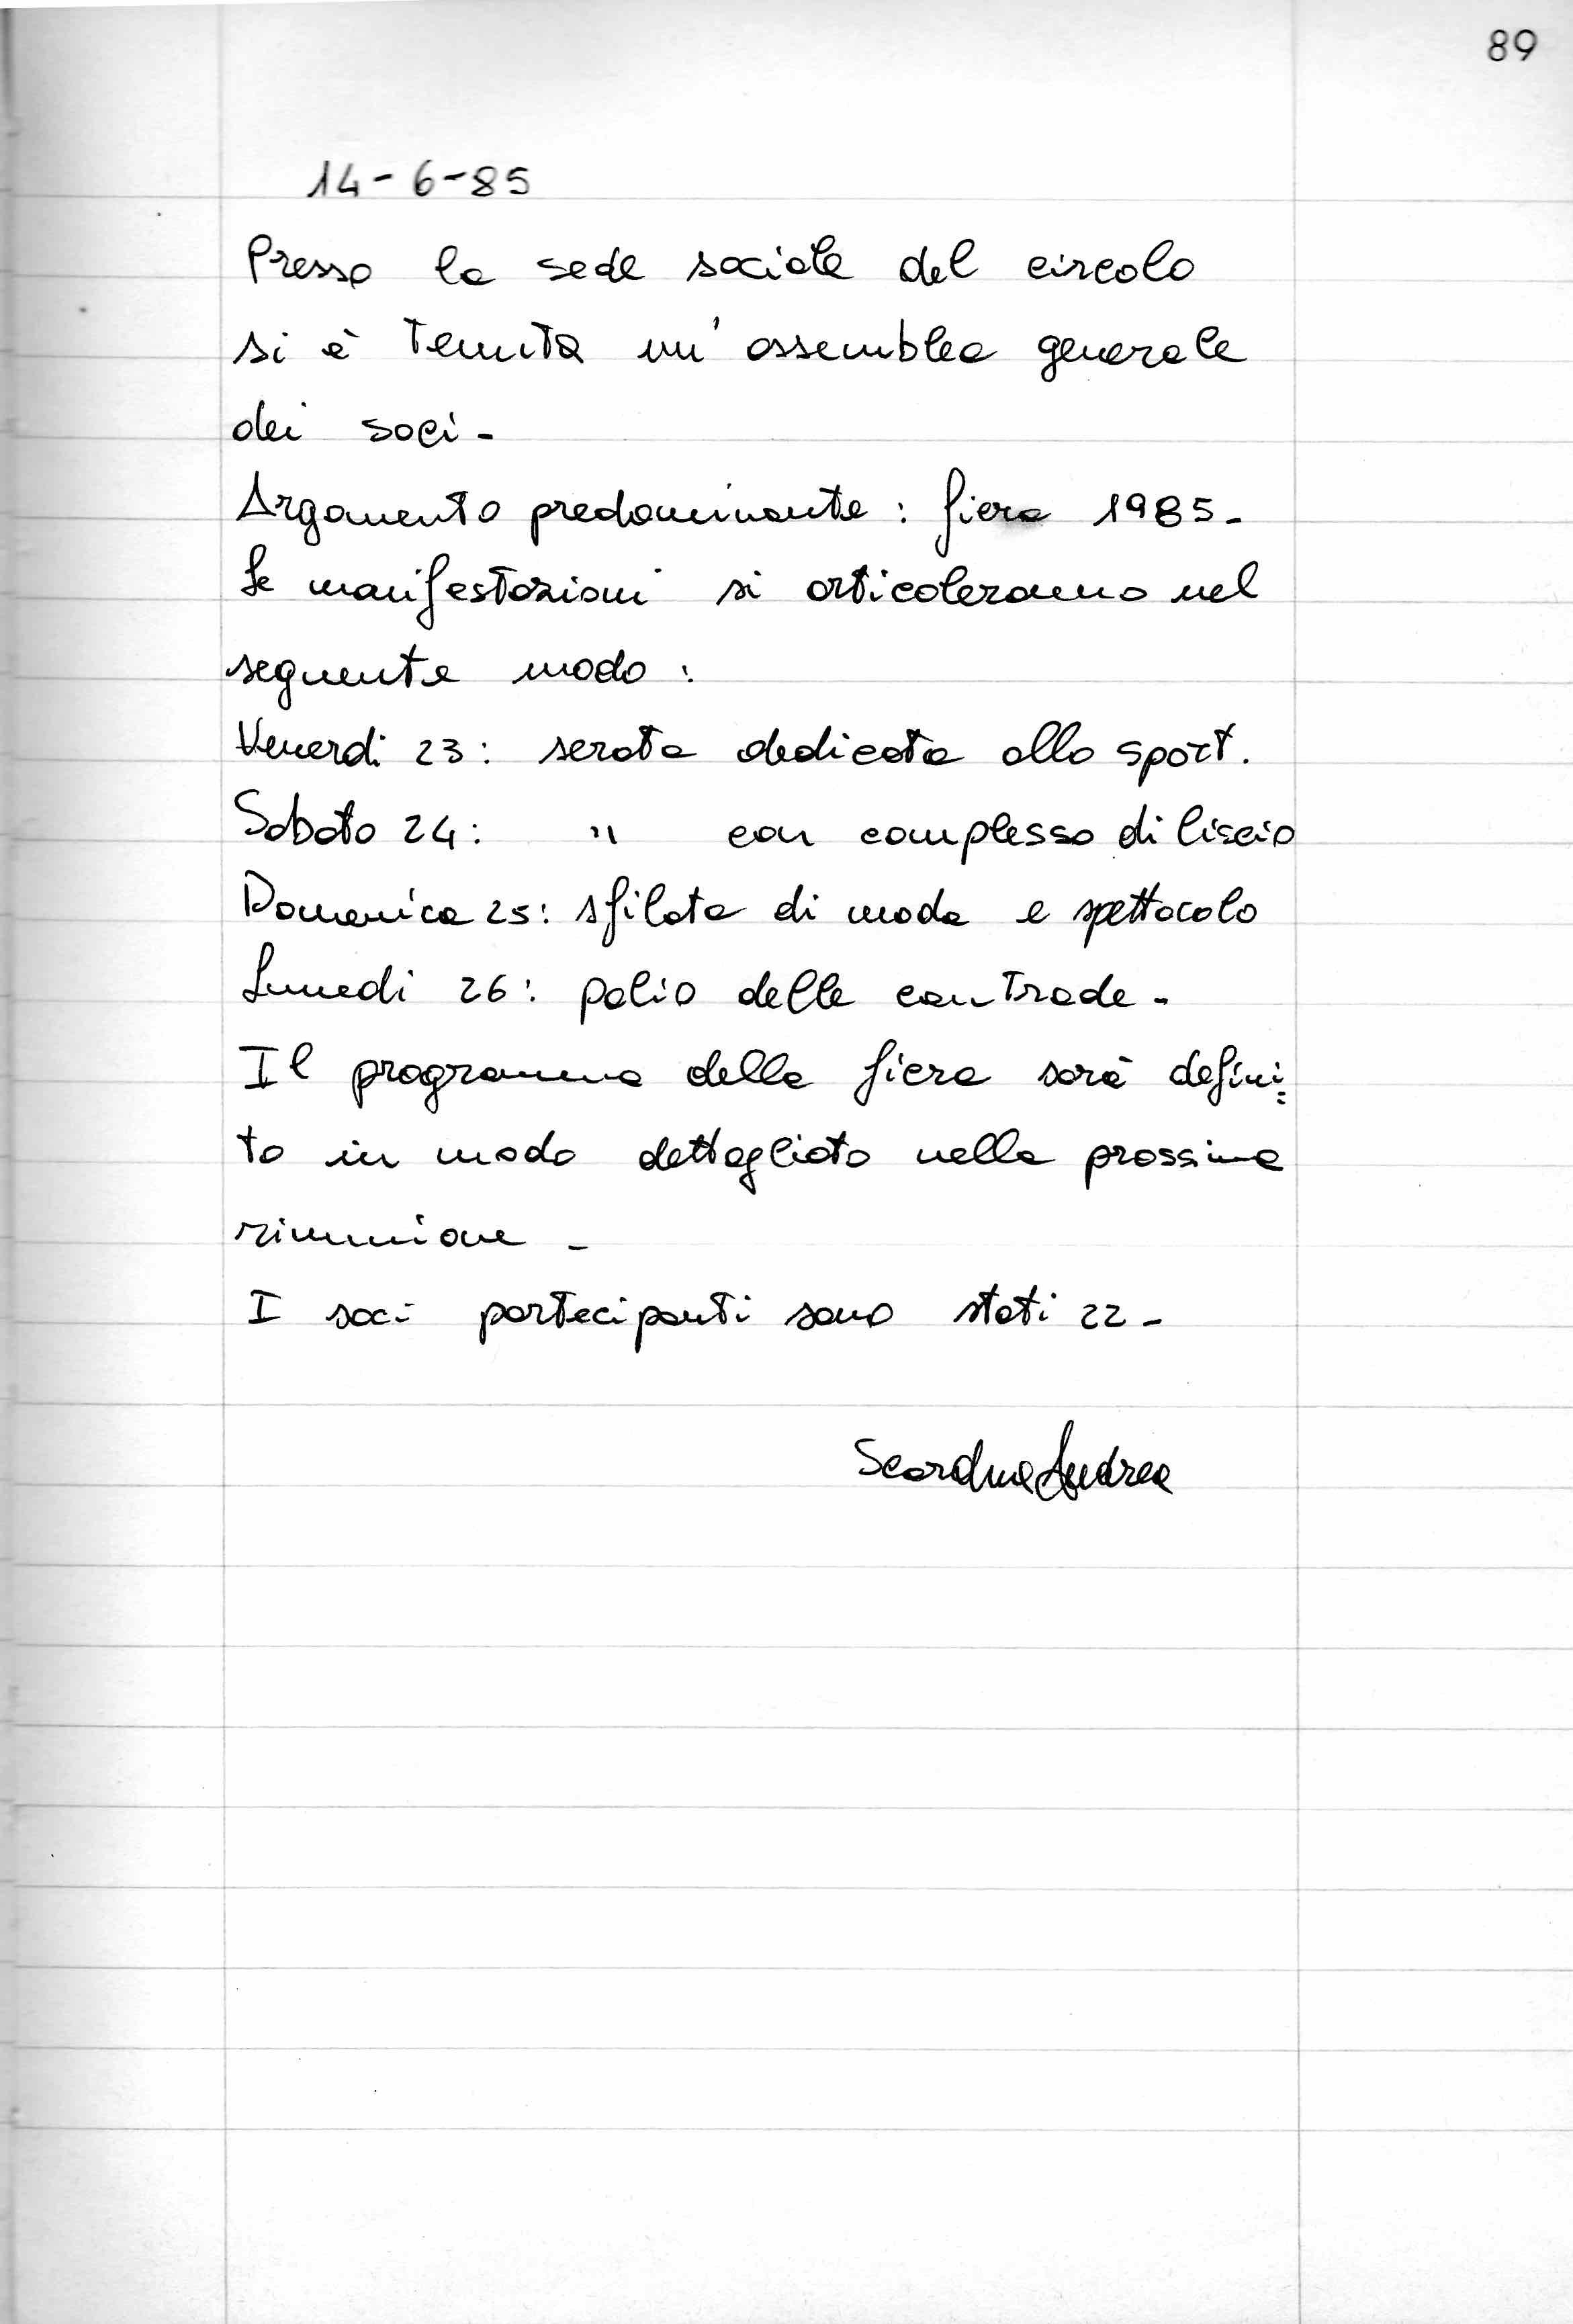 89
14-6-85
Presso la sede sociale del circolo
si è tenuta un'assemblea generale
dei soci -
Argomento predominante : fiera 1985 -
Le manifestazioni si articoleranno nel
seguente modo :
Venerdi 23 : serata dedicata allo sport.
Sabato 24 : " con complesso di liscio
Domenica 25 : sfilata di moda e spettacolo
Lunedi 26 : palio delle contrade -
Il programma della fiera sarà defini=
to in modo dettagliato nella prossima
riunione -
I soci partecipanti sono stati 22 -
Andrea